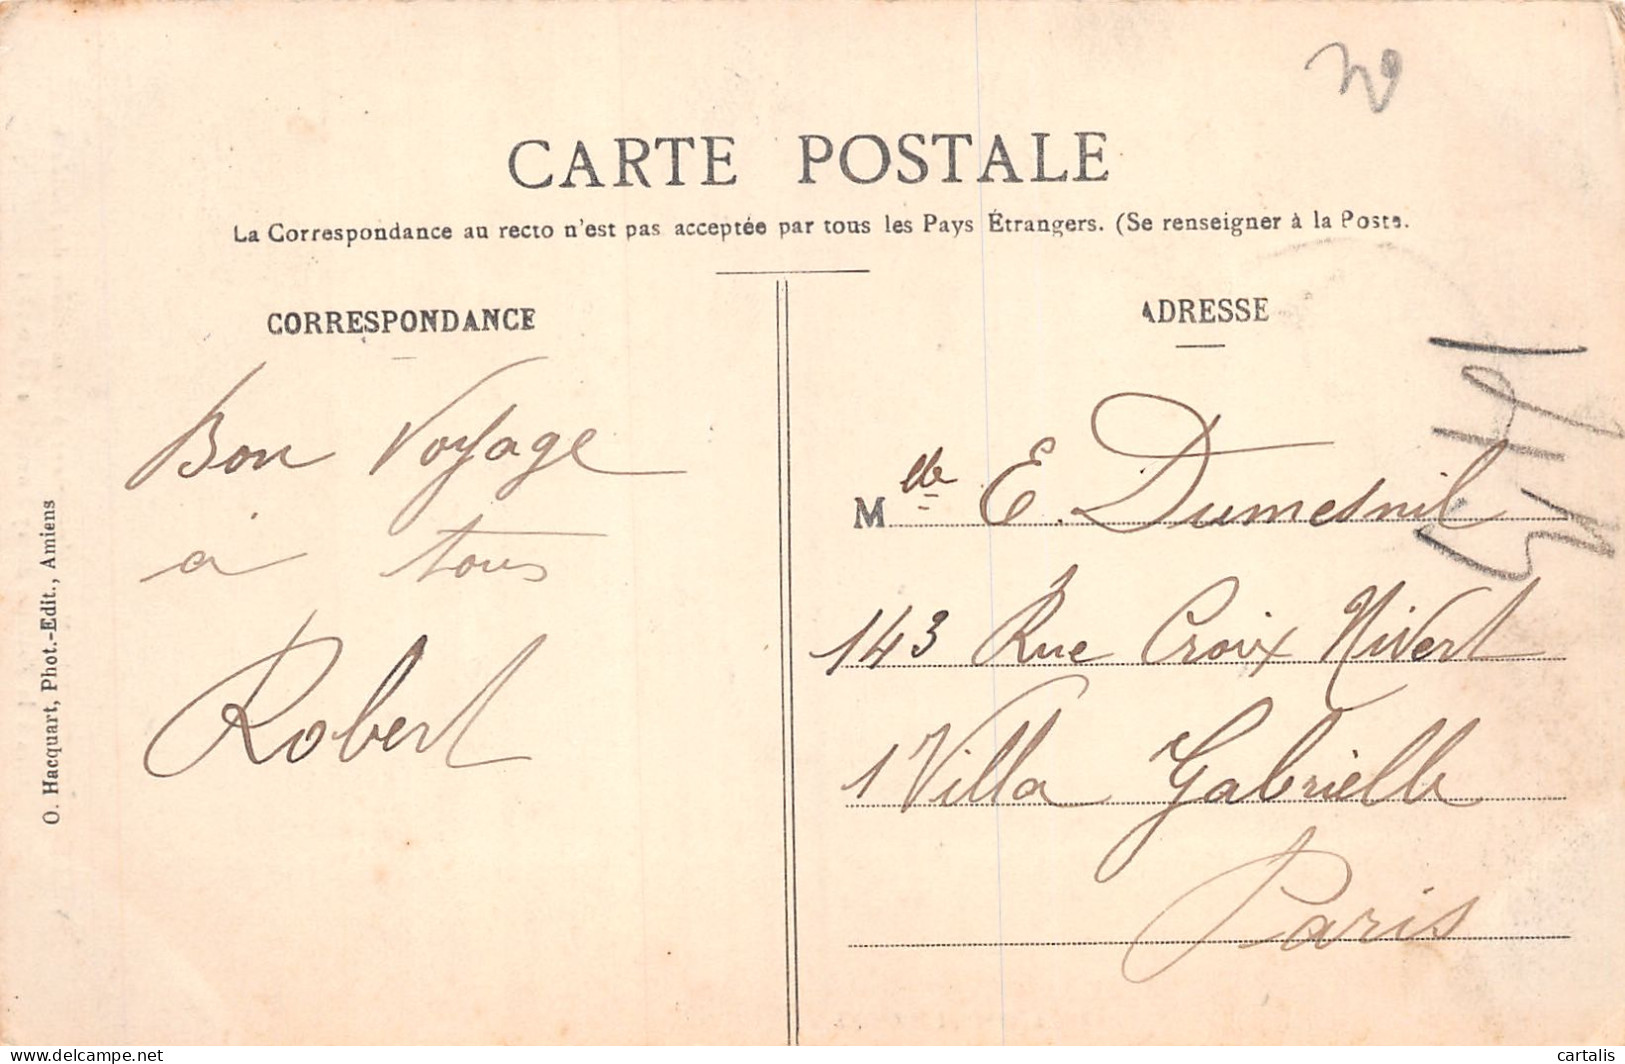 CARTE POSTALE
La Correspondance au recto n'est pas acceptée par tous les Pays Étrangers. (Se renseigner à la Poste.
CORRESPONDANCE
Bon Voyage
à tous
Robert
O. Hacquart, Phot.-Edit., Amiens
ADRESSE
Mlle E. Dumesnil
143 Rue Croix Nivert
1 Villa Gabrielle
Paris
delcampe.net
cartalis